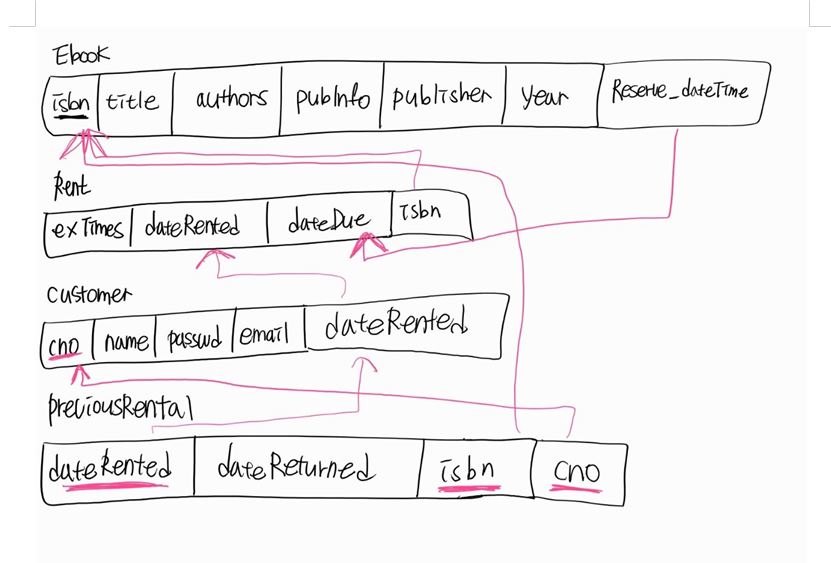 Ebook
isbn title authors pubInfo publisher year Reserve_dateTime
Rent
exTimes dateRented dateDue isbn
customer
cno name passwd email dateRented
previousRental
dateRented dateReturned isbn cno